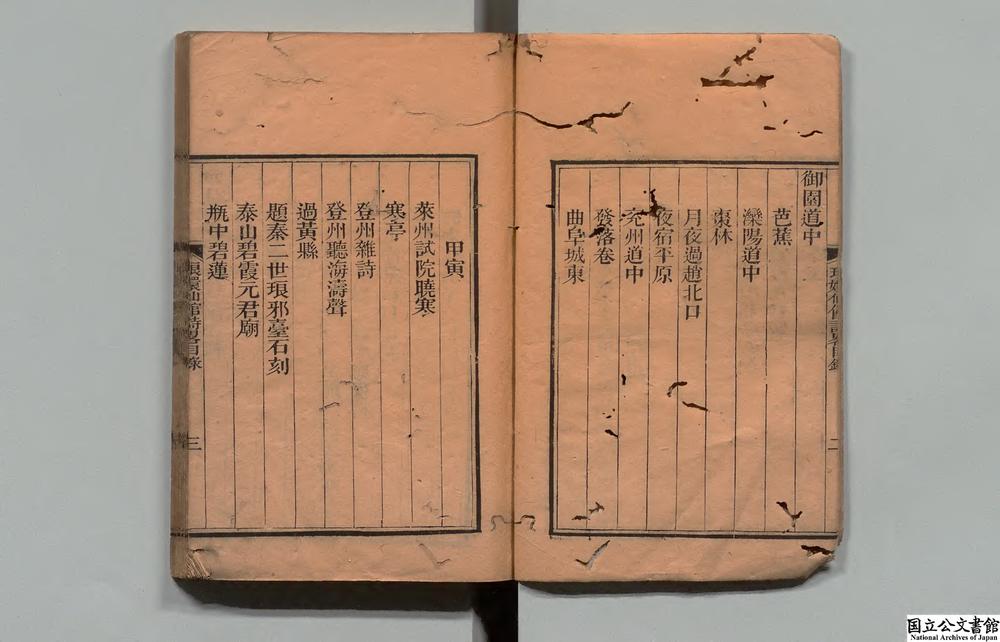 御園道中
芭蕉
灤陽道中
棗林
月夜過趙北口
夜宿平原
兖州道中
發落卷
曲阜城東
二
甲寅
萊州試院曉寒
寒亭
登州雜詩
登州聽海濤聲
過黃縣
題秦二世琅邪臺石刻
泰山碧霞元君廟
瓶中碧蓮
琅嬛仙館詩畧目錄
三
国立公文書館
National Archives of Japan